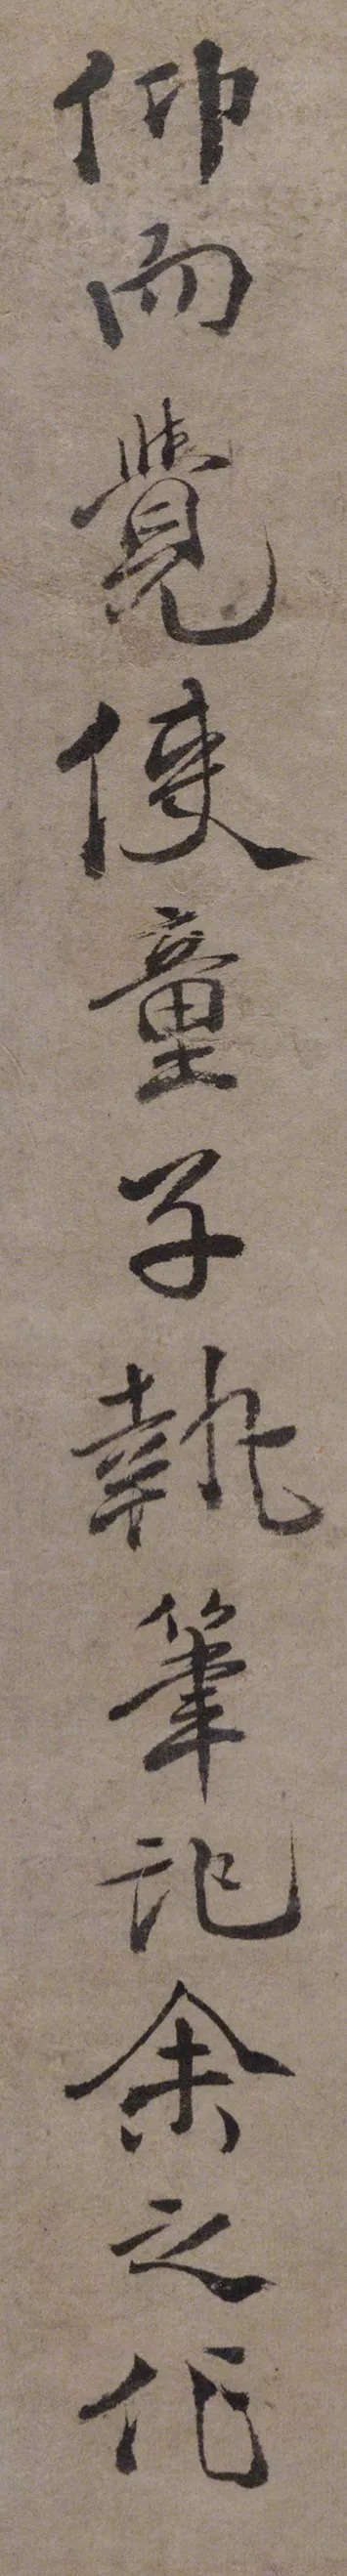 仰而覺使童子執筆記余之